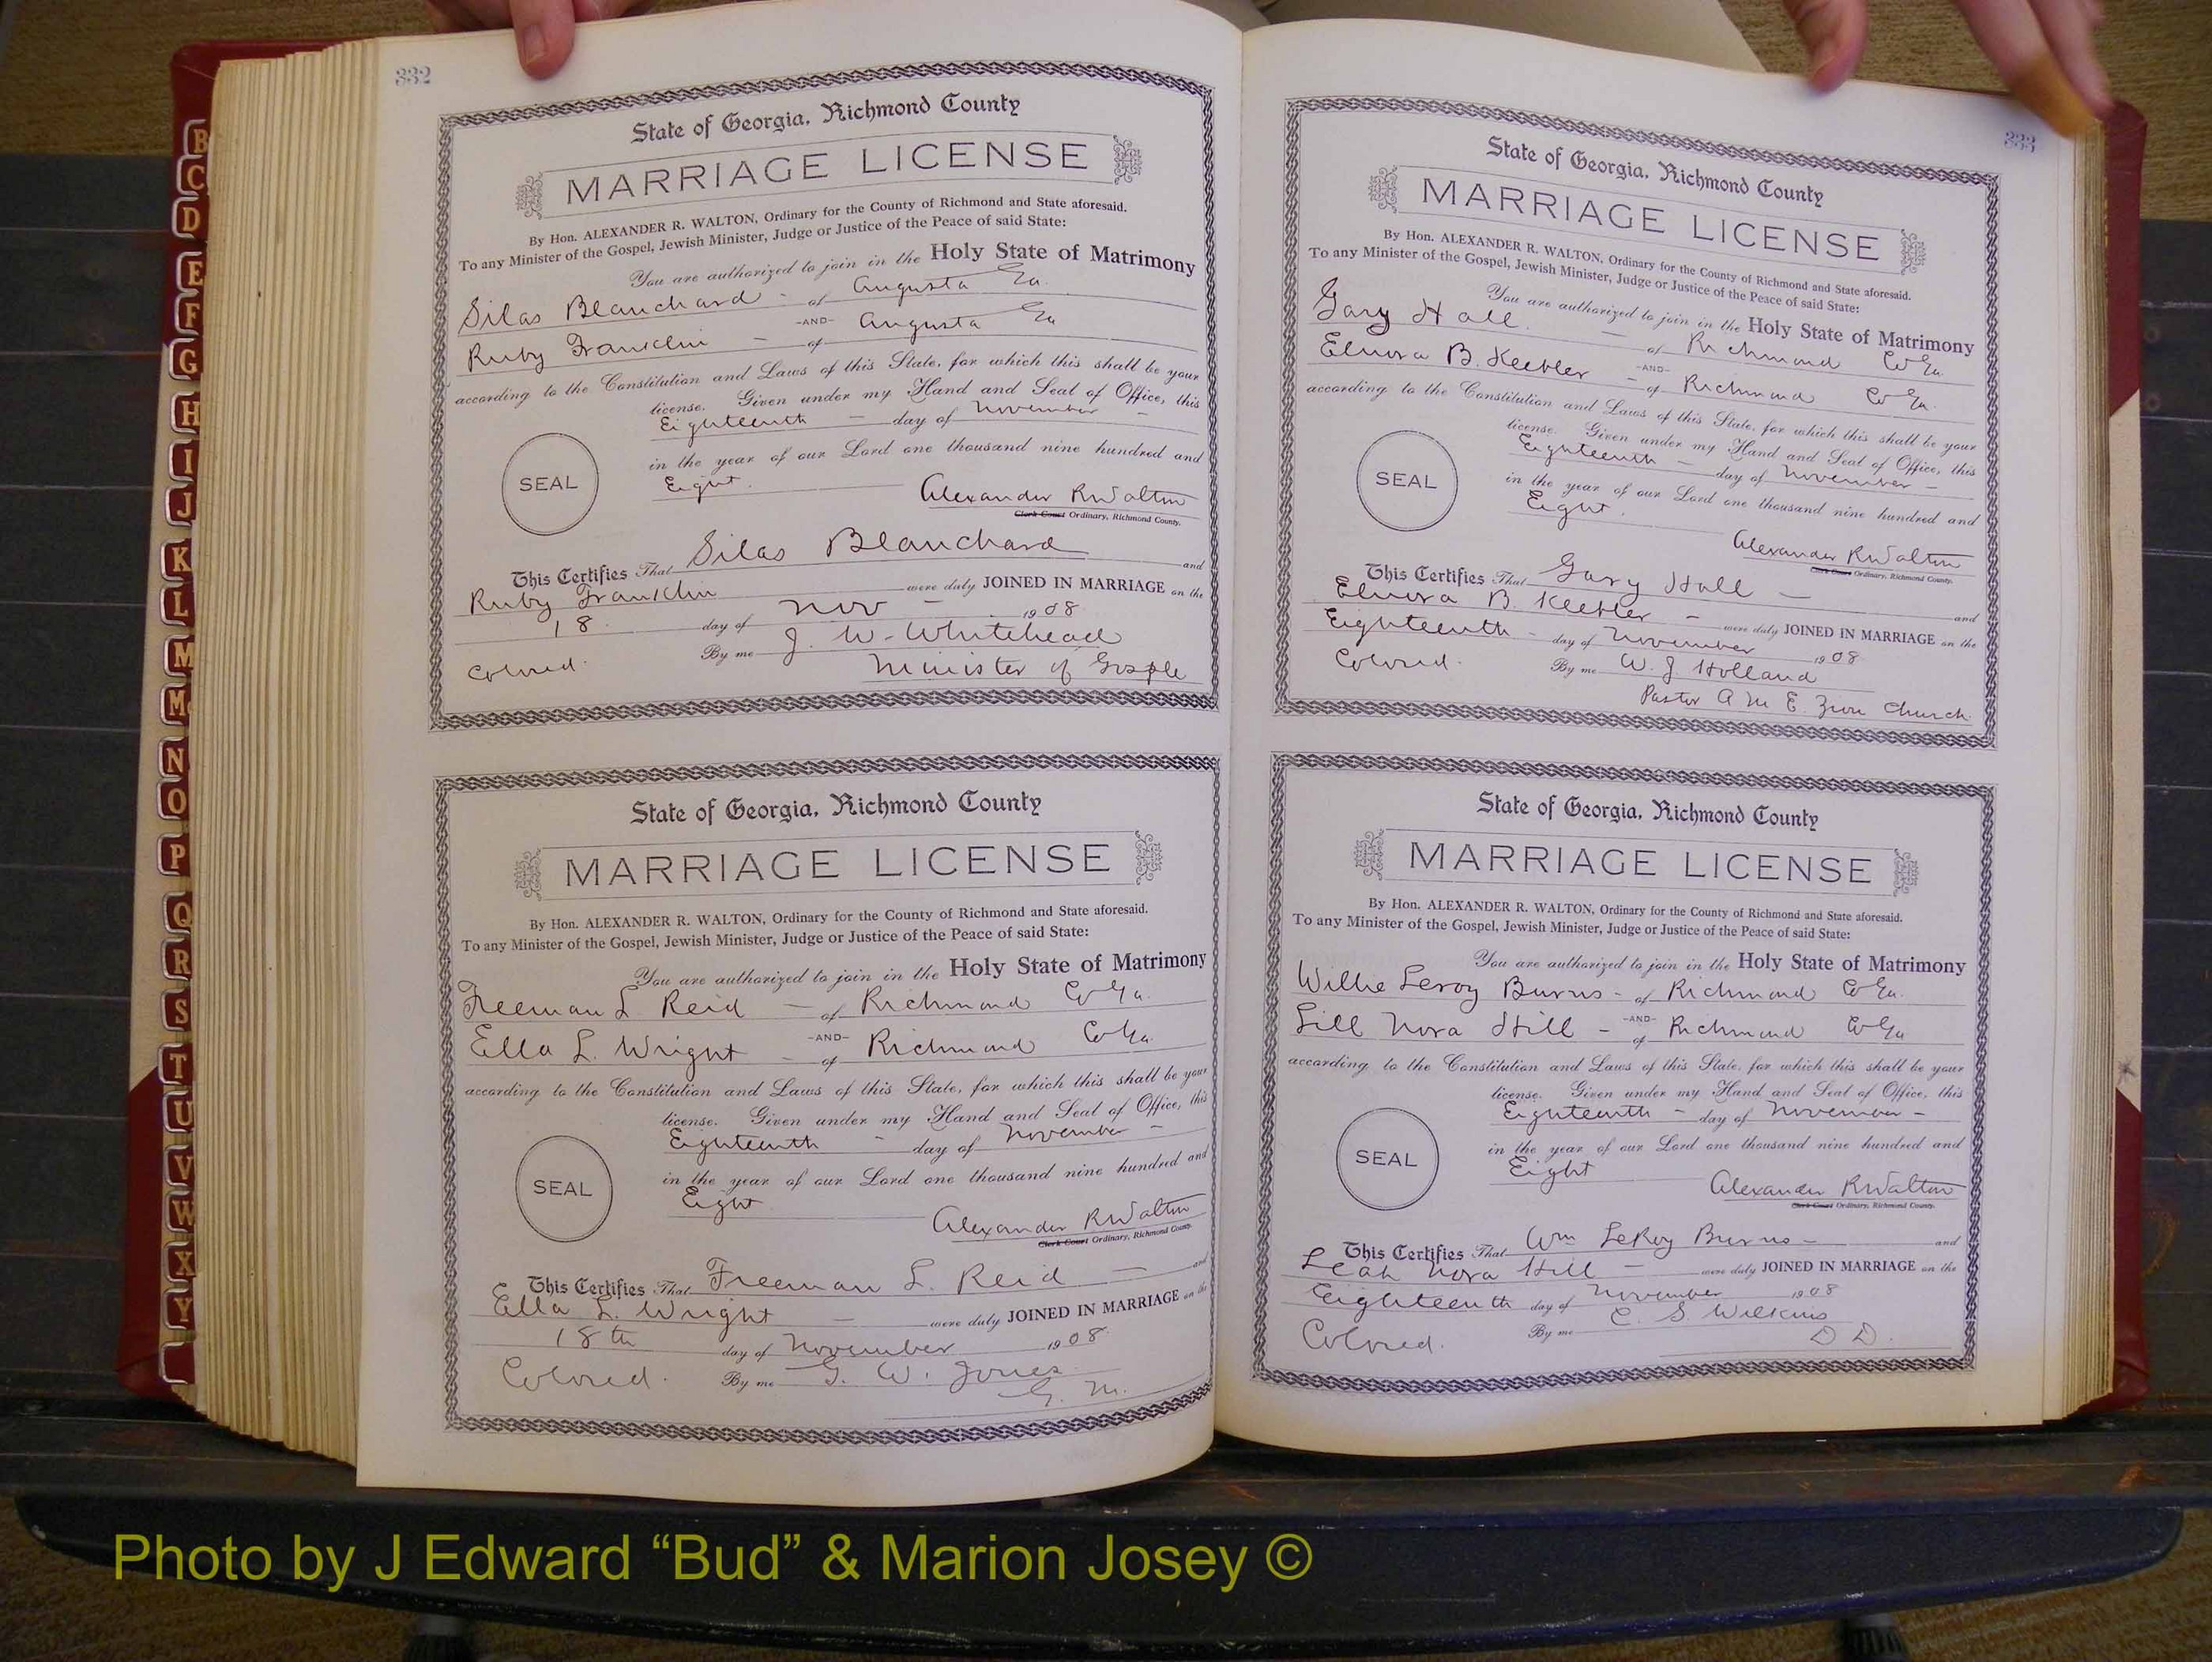 332
State of Georgia, Richmond County
MARRIAGE LICENSE
By Hon. ALEXANDER R. WALTON, Ordinary for the County of Richmond and State aforesaid.
To any Minister of the Gospel, Jewish Minister, Judge or Justice of the Peace of said State:
You are authorized to join in the Holy State of Matrimony
Silas Blanchard - of Augusta Ga.
-AND-
Ruby Franklin - of Augusta Ga
according to the Constitution and Laws of this State, for which this shall be your
license. Given under my Hand and Seal of Office, this
Eighteenth - day of November -
in the year of our Lord one thousand nine hundred and
Eight.
SEAL
Alexander R Walton
Clerk Court Ordinary, Richmond County.
This Certifies That Silas Blanchard and
Ruby Franklin were duly JOINED IN MARRIAGE on the
18 day of Nov - 1908
Colored. By me J. W. Whitehead
Minister of Gosple
State of Georgia, Richmond County
MARRIAGE LICENSE
By Hon. ALEXANDER R. WALTON, Ordinary for the County of Richmond and State aforesaid.
To any Minister of the Gospel, Jewish Minister, Judge or Justice of the Peace of said State:
You are authorized to join in the Holy State of Matrimony
Freeman L Reid - of Richmond Co Ga.
-AND-
Ella L. Wright - of Richmond Co Ga.
according to the Constitution and Laws of this State, for which this shall be your
license. Given under my Hand and Seal of Office, this
Eighteenth - day of November -
in the year of our Lord one thousand nine hundred and
Eight
SEAL
Alexander R Walton
Clerk Court Ordinary, Richmond County.
This Certifies That Freeman L. Reid - and
Ella L. Wright - were duly JOINED IN MARRIAGE on the
18th day of November 1908.
Colored. By me G. W. Jones
G. M.
333
State of Georgia, Richmond County
MARRIAGE LICENSE
By Hon. ALEXANDER R. WALTON, Ordinary for the County of Richmond and State aforesaid.
To any Minister of the Gospel, Jewish Minister, Judge or Justice of the Peace of said State:
You are authorized to join in the Holy State of Matrimony
Gary Hall. - of Richmond Co Ga.
-AND-
Elnora B. Keebler - of Richmond Co Ga.
according to the Constitution and Laws of this State, for which this shall be your
license. Given under my Hand and Seal of Office, this
Eighteenth - day of November -
in the year of our Lord one thousand nine hundred and
Eight.
SEAL
Alexander R Walton
Clerk Court Ordinary, Richmond County.
This Certifies That Gary Hall - and
Elnora B. Keebler - were duly JOINED IN MARRIAGE on the
Eighteenth - day of November 1908
Colored. By me W. J Holland
Pastor A M E Zion Church
State of Georgia, Richmond County
MARRIAGE LICENSE
By Hon. ALEXANDER R. WALTON, Ordinary for the County of Richmond and State aforesaid.
To any Minister of the Gospel, Jewish Minister, Judge or Justice of the Peace of said State:
You are authorized to join in the Holy State of Matrimony
Willie Leroy Burns - of Richmond Co Ga.
-AND-
Lill Nora Hill - of Richmond Co Ga
according to the Constitution and Laws of this State, for which this shall be your
license. Given under my Hand and Seal of Office, this
Eighteenth - day of November -
in the year of our Lord one thousand nine hundred and
Eight
SEAL
Alexander R Walton
Clerk Court Ordinary, Richmond County.
This Certifies That Wm LeRoy Burns - and
Leah Nora Hill - were duly JOINED IN MARRIAGE on the
Eighteenth day of November 1908
Colored. By me C. S Wilkins
D D.
B
C
D
E
F
G
H
I
J
K
L
M
Mc
N
O
P
Q
R
S
T
U
V
W
X
Y
Photo by J Edward “Bud” & Marion Josey ©